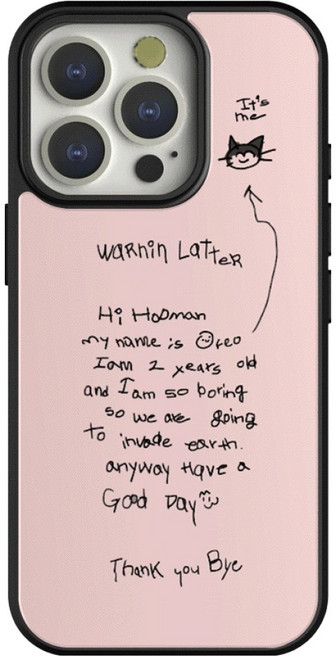 It's
me
Warnin Latter
Hi Hooman
my name is Oreo
I am 2 years old
and I am so boring
so we are going
to invade earth.
anyway Have a
Good Day
Thank you Bye